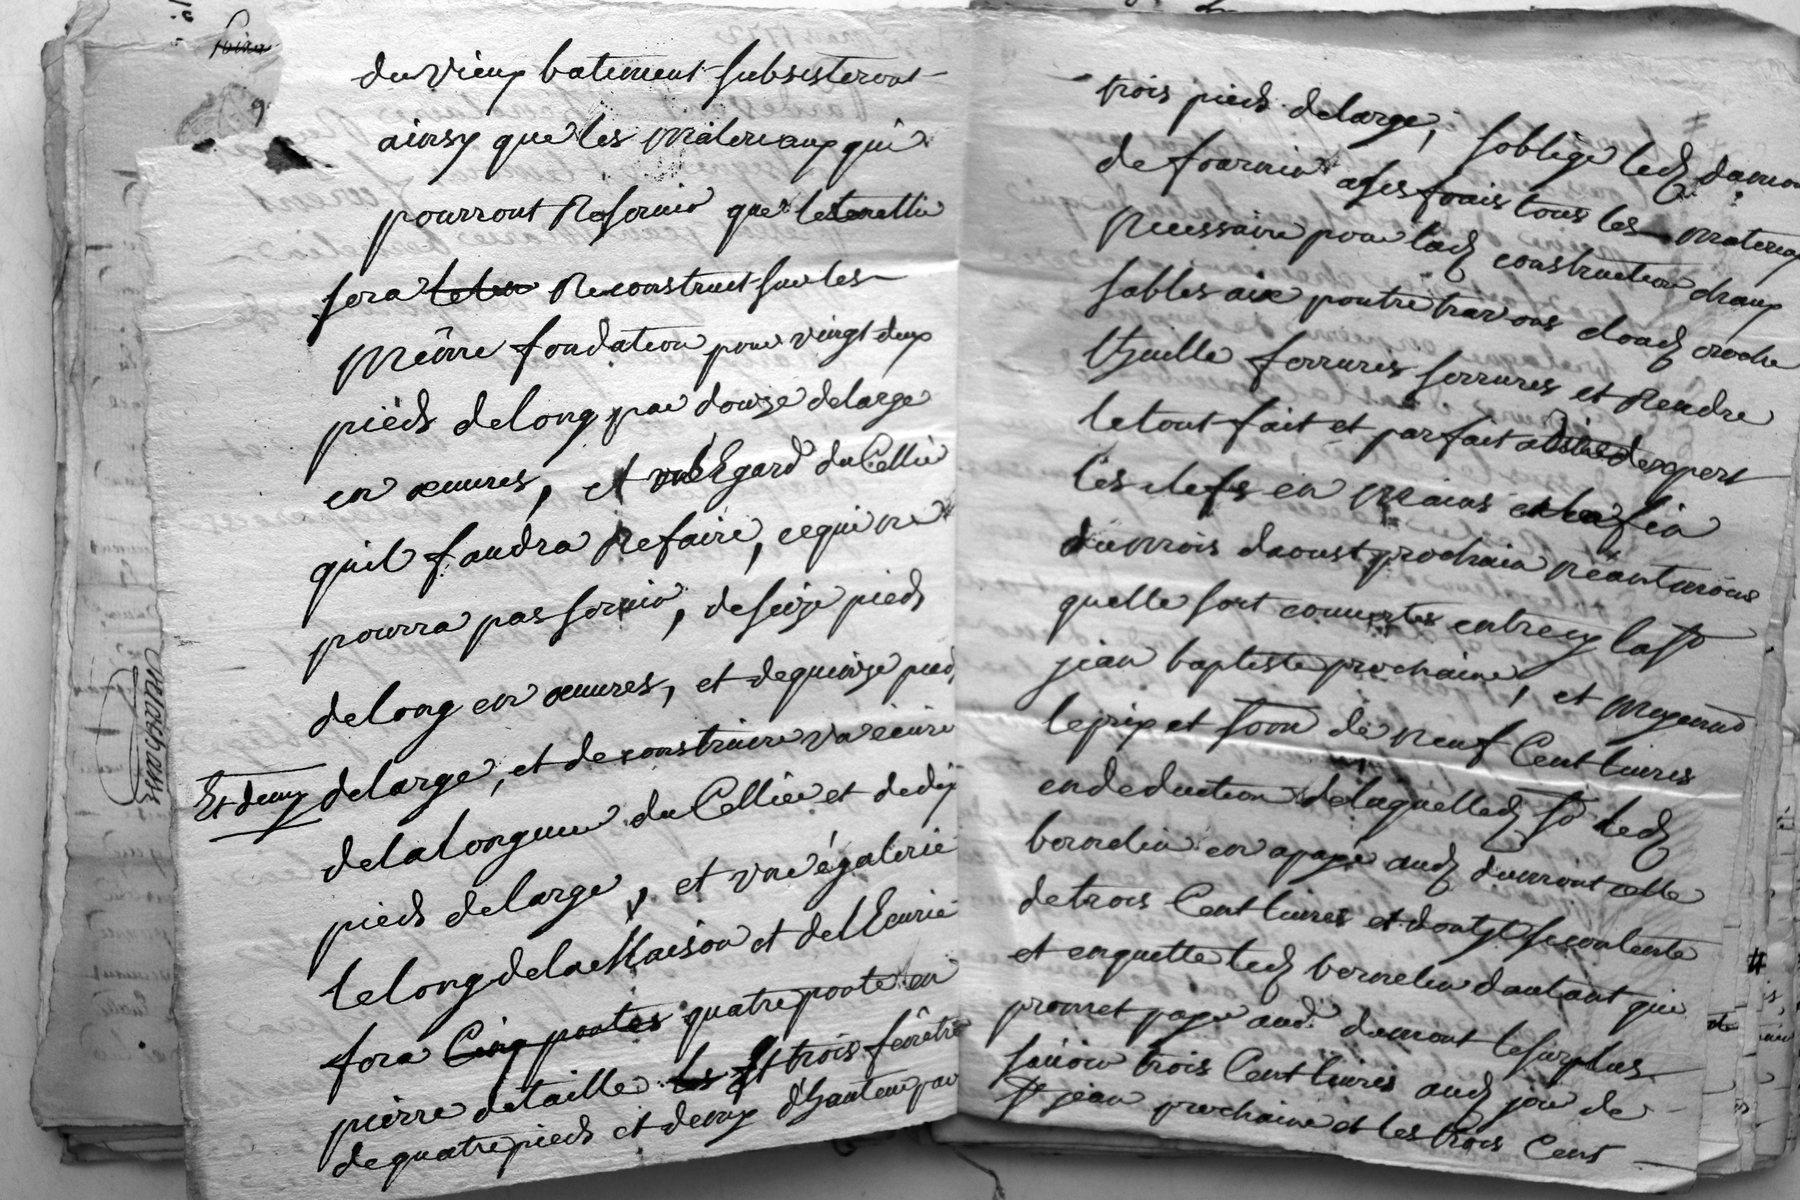 du vieux batiment subsisteront
ainsy que les materiaux qui
pourront reservir que le
sera reconstruct sur les
même fondation pour vingt deux
pieds de long par douze de large
en œuures, et Egard du Cellié
quil faudra Refaire, ce qui ne
pourra pas servir, de seize pieds
de long en œuures, et de quinze pied
Et demy de large, et de construire vn écurie
de la longueur du Cellier et de dix
pieds de large, et vne égalerie
le long de la Maison et de l'Ecurie
fera Cinq portes quatre porte en
pierre de taille les Et trois fenêtre
de quatre pieds et demy d'hauteur par
trois pieds de large, soblige led. dumon
de fournir a ses frais tous les materiaux
Necessaire pour lad. construction chaux
sables aix poutre travons cloud croche
thuille ferrures serrures et Rendre
le tout fait et parfait a dexpert
les clefs en mains a la fin
du mois daoust prochain néantmoins
quelle soit couuertes entre cy la St
jean baptiste prochaine, et moyennant
le prix et som de neuf Cent liures
en deduction de laquelle d. so. led.
bornelin en a payé aud. dumont celle
de trois Cent liures et dont il se contente
et en quitte led. bornelin dautant qui
promet paye aud. dumont le surplus
sauoir trois Cent liures aud. jour de
St jean prochaine et les trois Cent